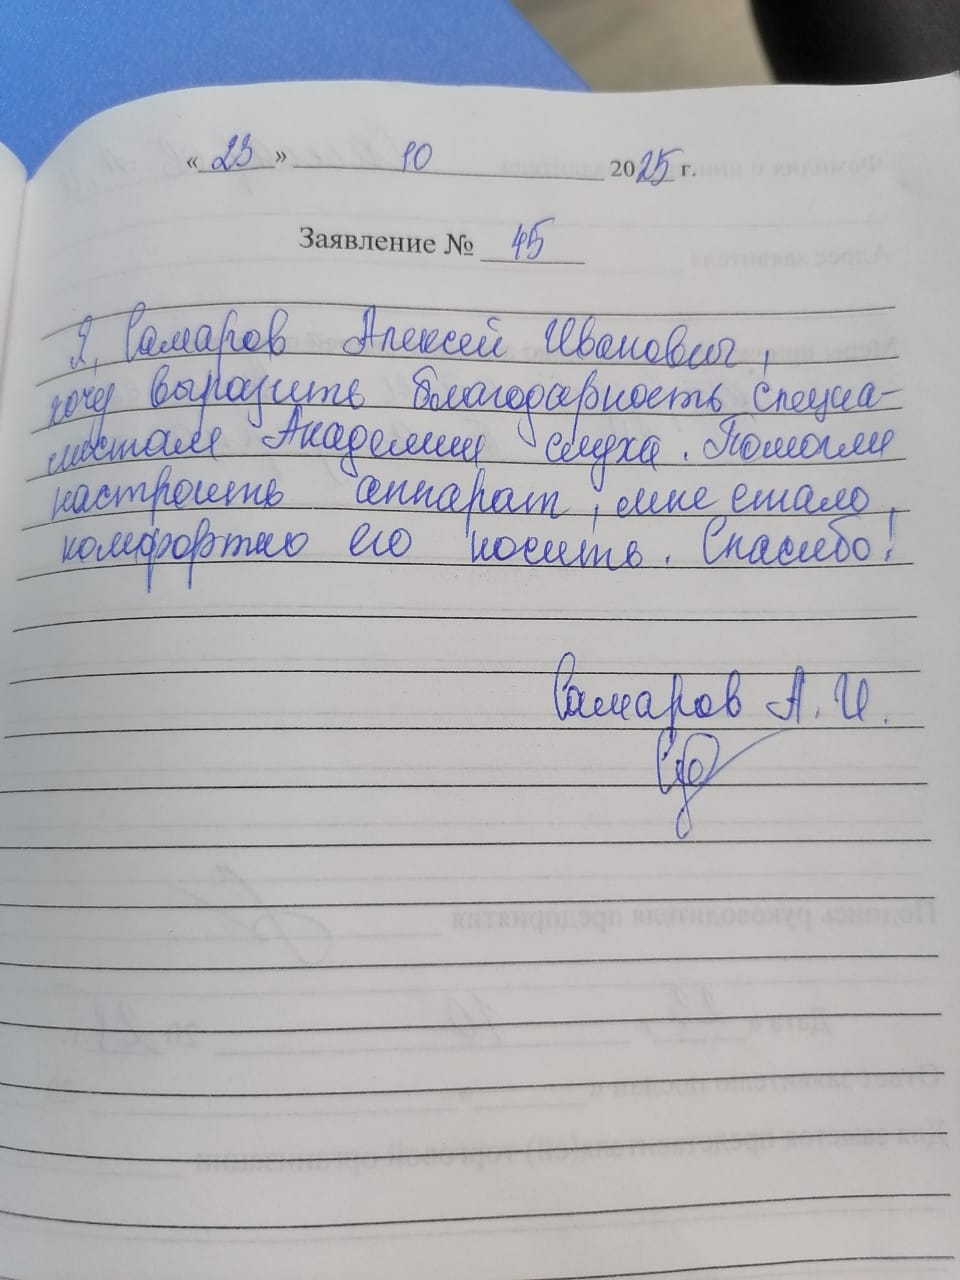 « 23 » 10 2025 г.
Заявление № 45
Я, Самаров Алексей Иванович,
хочу выразить благодарность специа-
листам Академии слуха. Помогли
настроить аппарат, мне стало
комфортно его носить. Спасибо!
Самаров А. И.